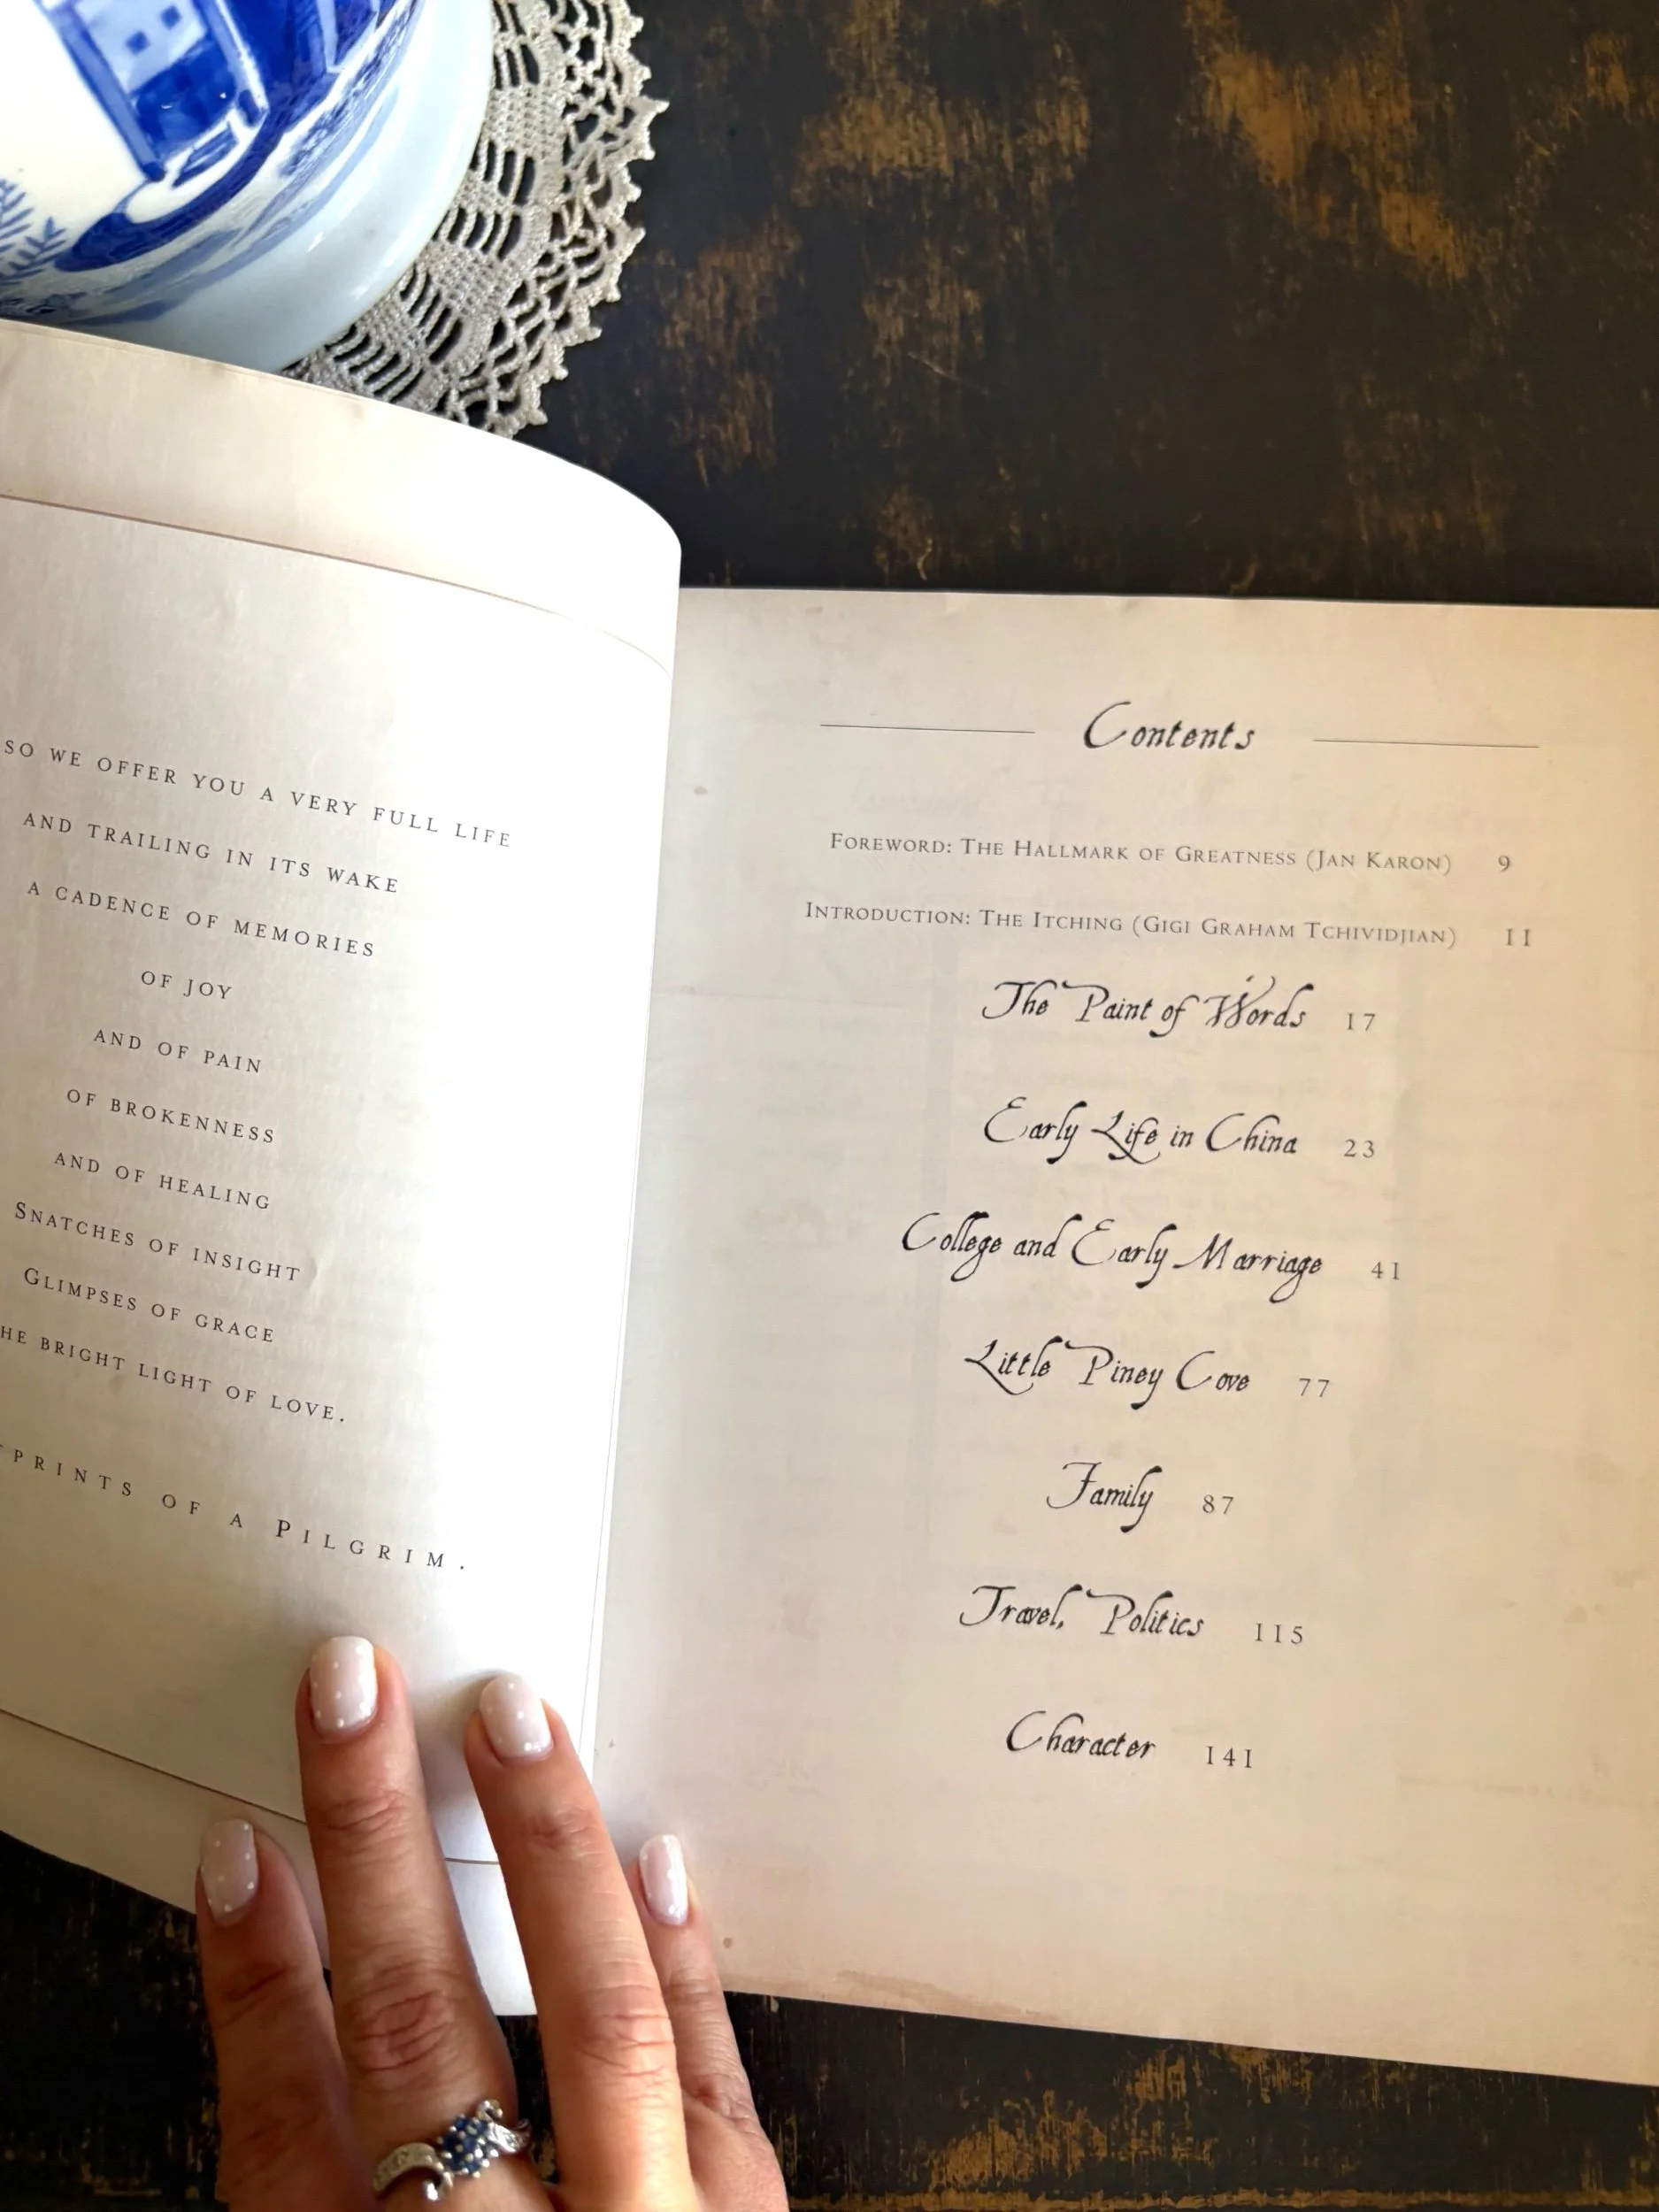 SO WE OFFER YOU A VERY FULL LIFE
AND TRAILING IN ITS WAKE
A CADENCE OF MEMORIES
OF JOY
AND OF PAIN
OF BROKENNESS
AND OF HEALING
SNATCHES OF INSIGHT
GLIMPSES OF GRACE
BRIGHT LIGHT OF LOVE.
OF A PILGRIM.
Contents
FOREWORD: THE HALLMARK OF GREATNESS (JAN KARON) 9
INTRODUCTION: THE ITCHING (GIGI GRAHAM TCHIVIDJIAN) 11
The Paint of Words 17
Early Life in China 23
College and Early Marriage 41
Little Piney Cove 77
Family 87
Travel, Politics 115
Character 141